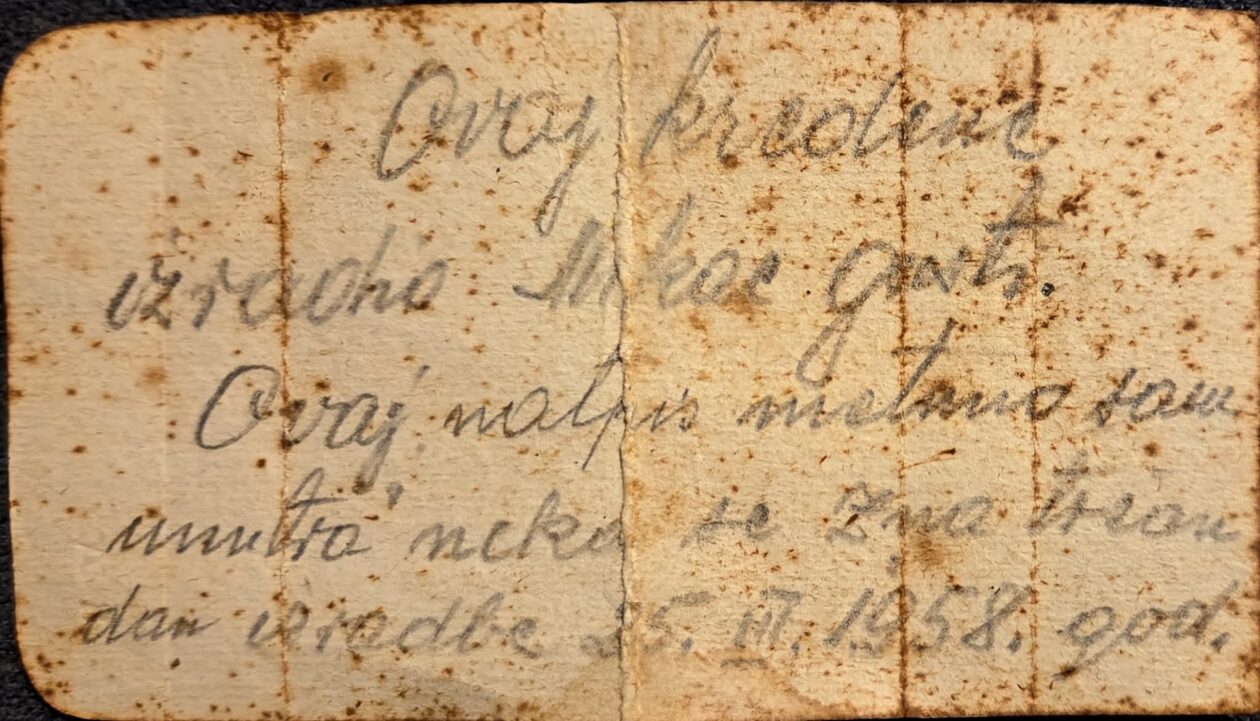 Ovaj kredenc
izradio Mikac
Ovaj natpis metnuo sam
unutra neka se zna
dan izradbe 25. III. 1958. god.